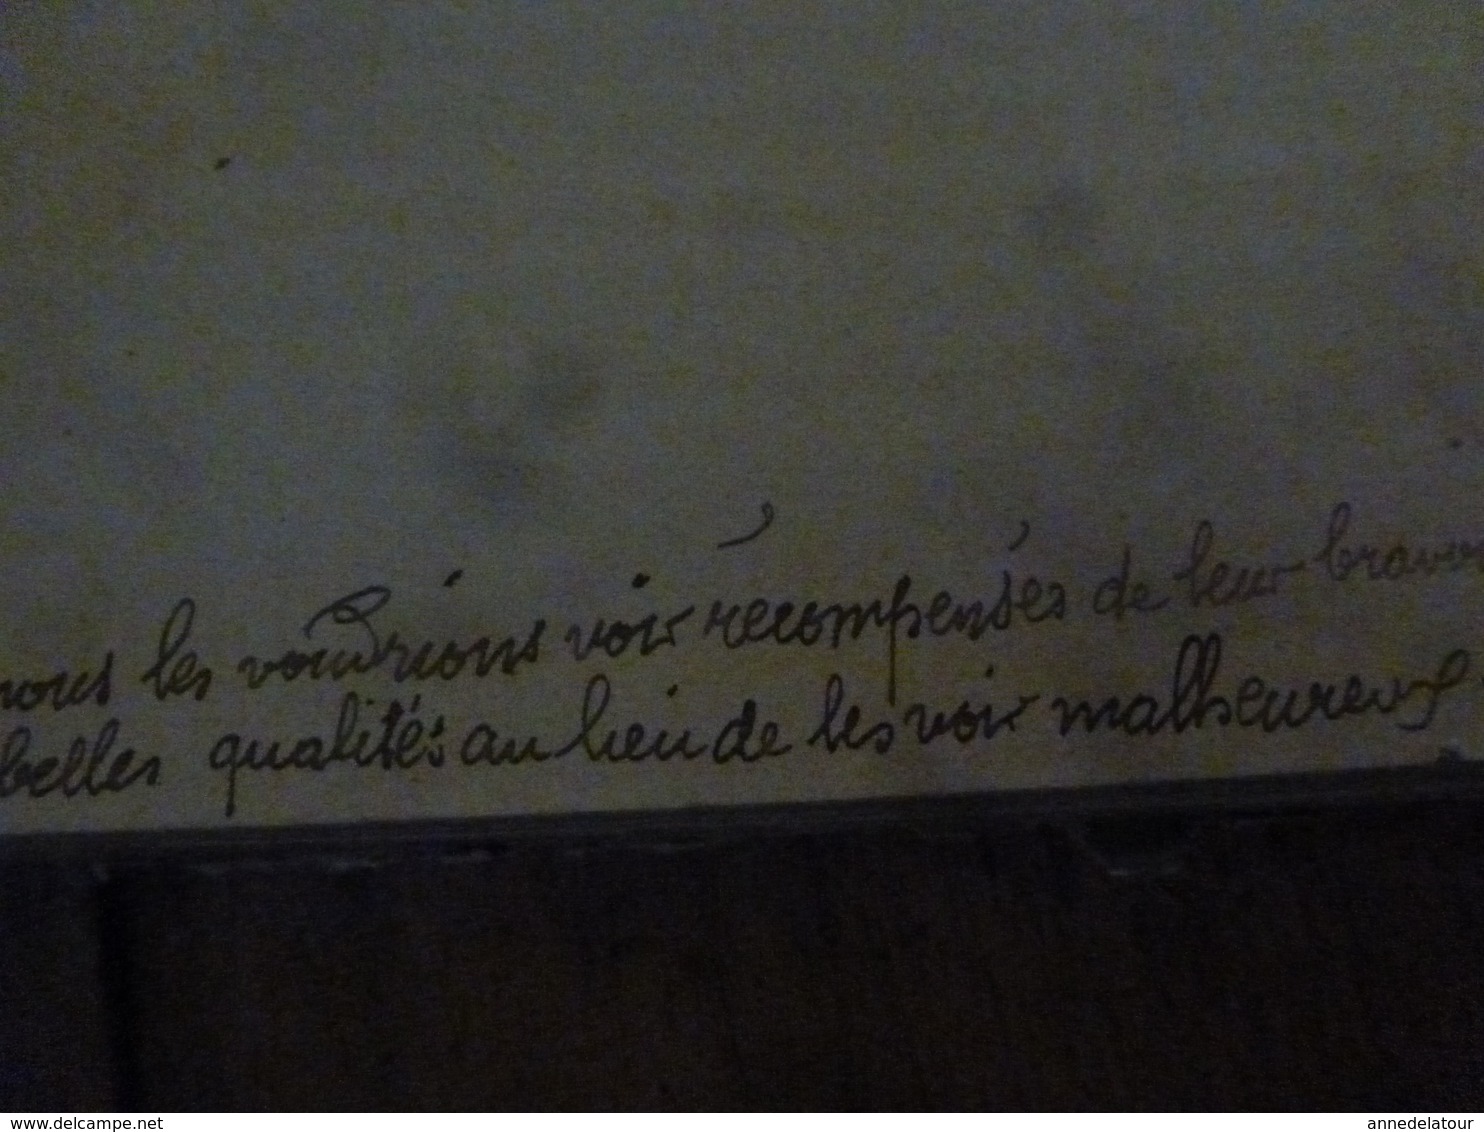 nous les voudrions voir récompensés de leur bravou
belles qualités au lieu de les voir malheureux
www.delcampe.net
annedelatour